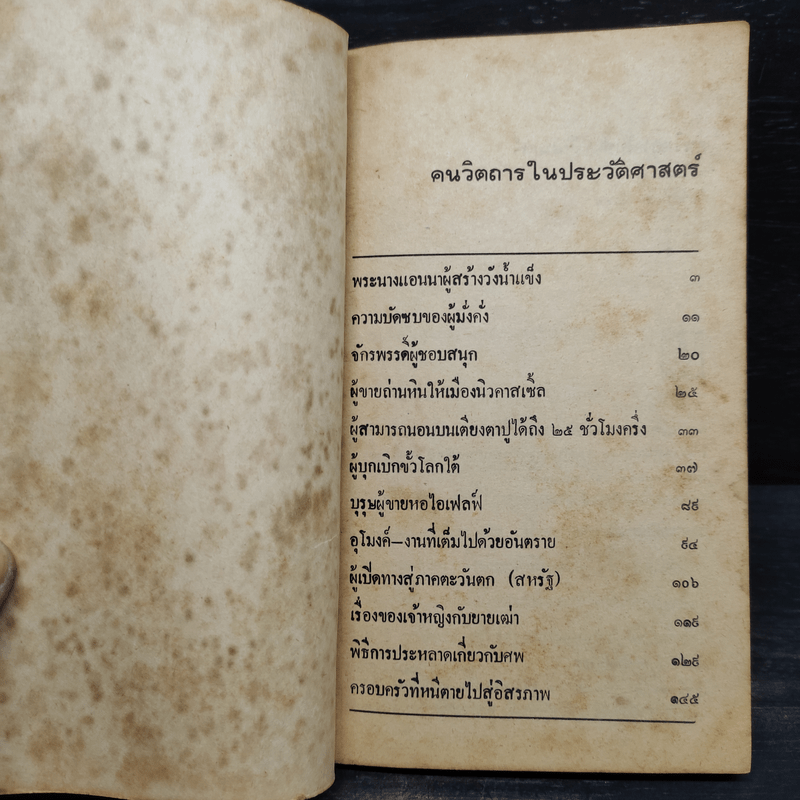 คนวิตถารในประวัติศาสตร์
พระนางแอนนาผู้สร้างวังน้ำแข็ง ๓
ความบัดซบของผู้มั่งคั่ง ๑๑
จักรพรรดิ์ผู้ชอบสนุก ๒๐
ผู้ขายถ่านหินให้เมืองนิวคาสเซิ้ล ๒๕
ผู้สามารถนอนบนเตียงตาปูได้ถึง ๒๕ ชั่วโมงครึ่ง ๓๓
ผู้บุกเบิกขั้วโลกใต้ ๓๗
บุรุษผู้ขายหอไอเฟลฟ์ ๘๙
อุโมงค์–งานที่เต็มไปด้วยอันตราย ๙๔
ผู้เปิดทางสู่ภาคตะวันตก (สหรัฐ) ๑๐๖
เรื่องของเจ้าหญิงกับยายเฒ่า ๑๑๙
พิธีการประหลาดเกี่ยวกับศพ ๑๒๙
ครอบครัวที่หนีตายไปสู่อิสรภาพ ๑๔๕